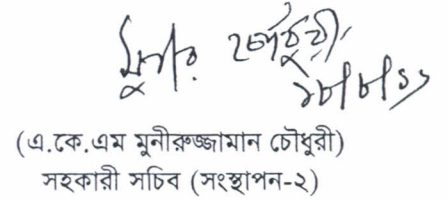 মুনীর চৌধুরী
১৮/৮/১১
(এ.কে.এম মুনীরুজ্জামান চৌধুরী)
সহকারী সচিব (সংস্থাপন-২)